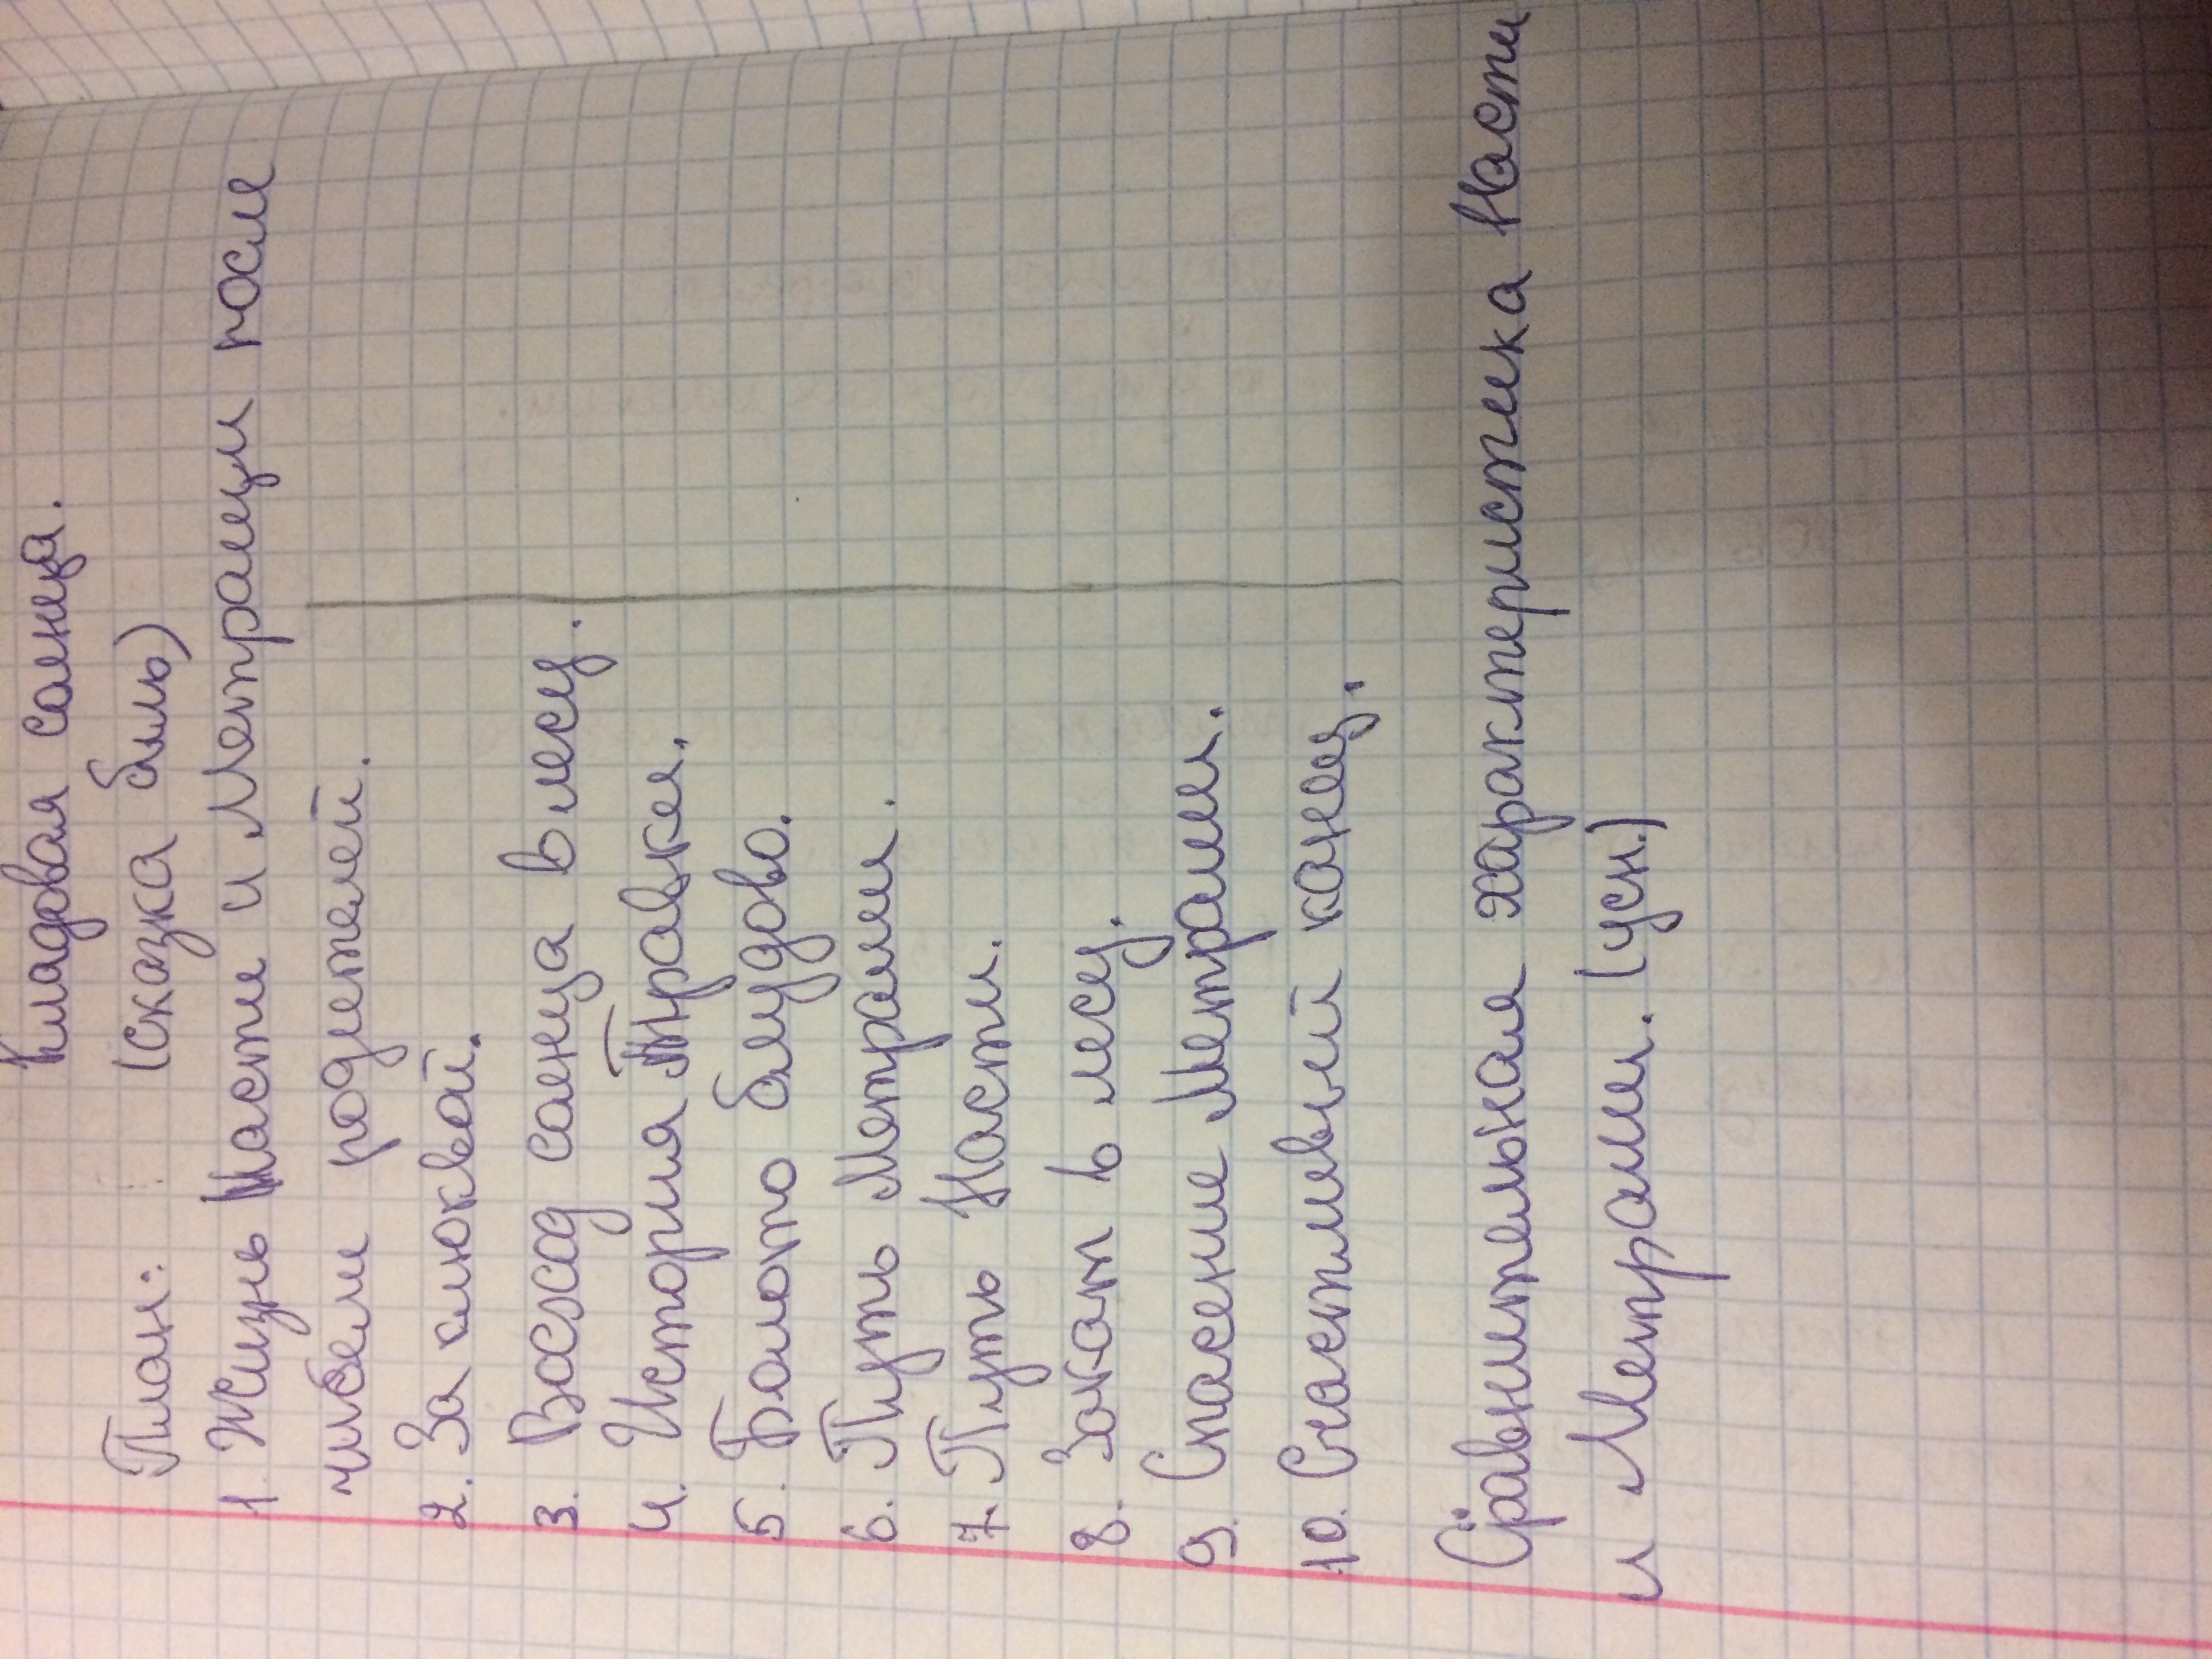 Кладовая солнца.
План: (сказка быль)
1. Жизнь Насти и Метраши после
гибели родителей.
2. За клюквой.
3. Восход солнца в лесу.
4. История Травки.
5. Болото блудово.
6. Путь Метраши.
7. Путь Насти.
8. Закат в лесу.
9. Спасение Метраши.
10. Счастливый конец.
Сравнительная характеристика Насти
и Метраши. (усн.)